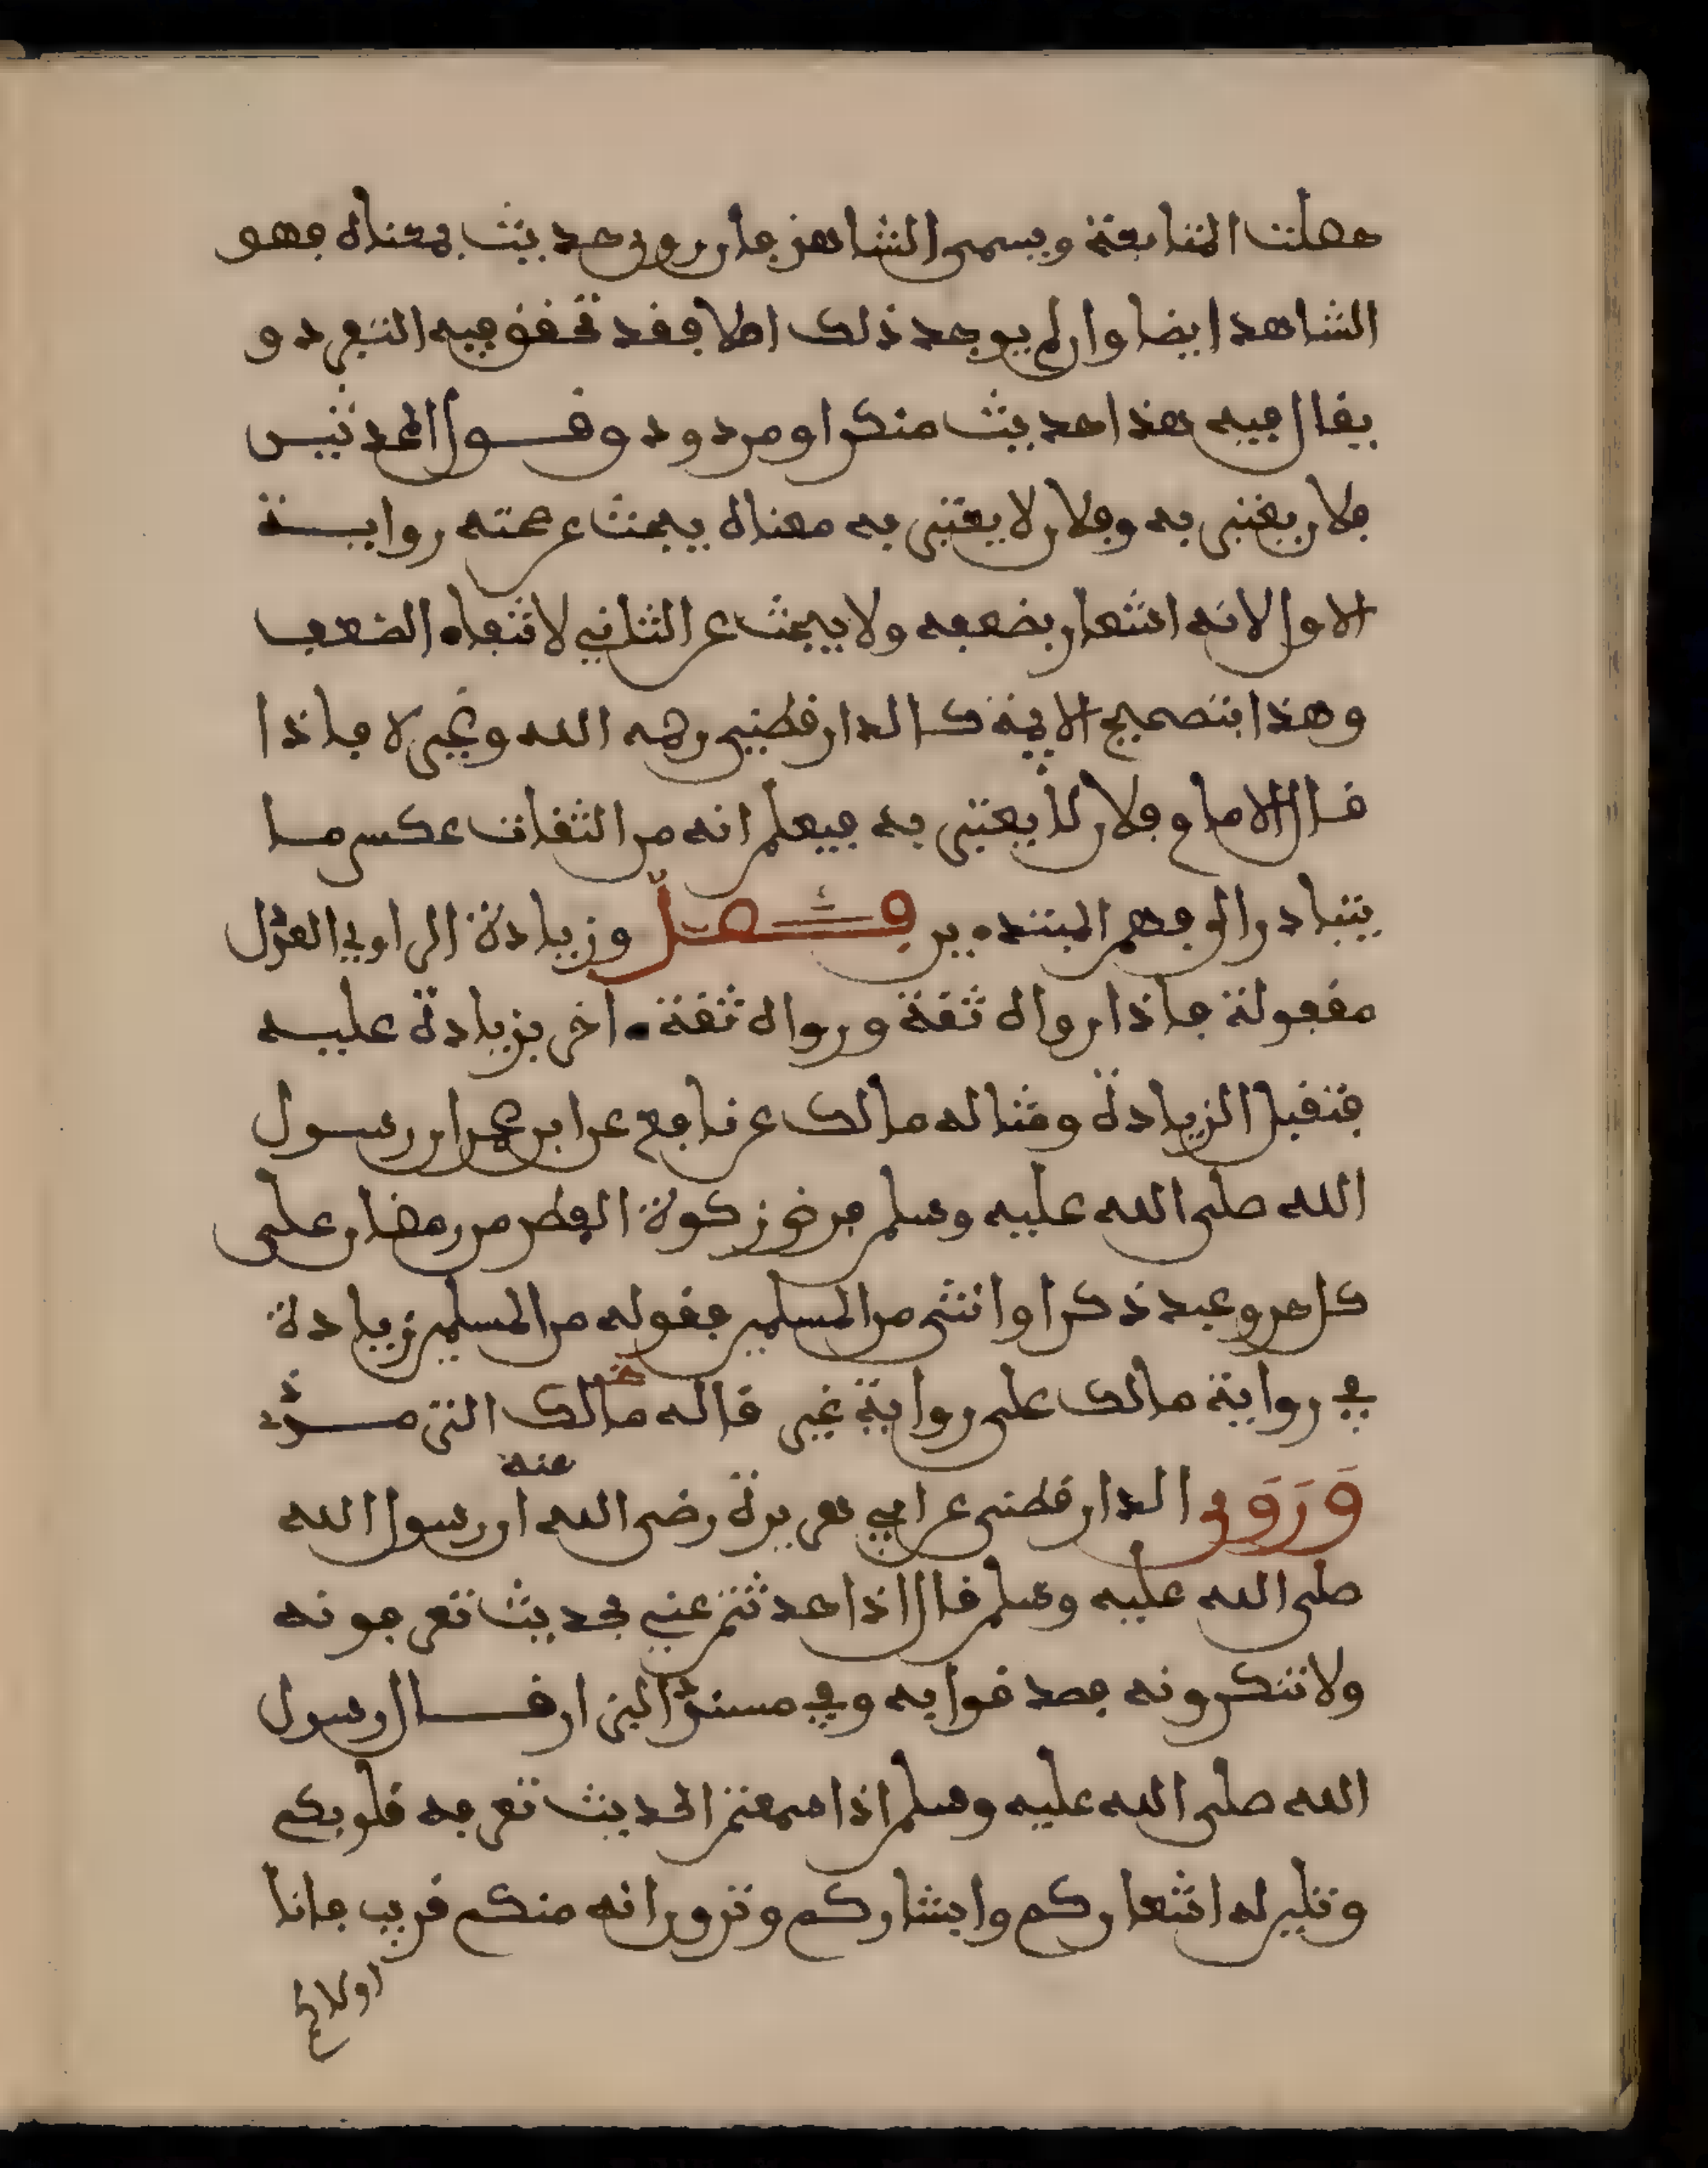 حصلت المتابعة ويسمى الشاهد فان روى حديث بمعناه فهو
الشاهد ايضا وان لم يوجد ذلك اصلا فقد تحقق فيه التفرد و
يقال فيه هذا حديث منكر او مردود وقول المحدثين
فلان يعتنى به وفلان لا يعتنى به معناه يبحث عن صحته رواية
الاول لانه اشعار بضعفه ولا يبحث عن الثاني لانتفاء الضعف
وهذا بتصحيح الايمة كالدارقطني رحمه الله وغيره فاذا
قال الامام فلان لا يعتنى به فيعلم انه من الثقات عكس ما
يتبادر الى وهم المبتدءين فصل وزيادة الراوي العدل
مقبولة فاذا رواه ثقة ورواه ثقة ءاخر بزيادة عليه
فتقبل الزيادة ومثاله مالك عن نافع عن ابن عمر ان رسول
الله صلى الله عليه وسلم فرض زكوة الفطر من رمضان على
كل حر وعبد ذكر او انثى من المسلمين فقوله من المسلمين زيادة
في رواية مالك على رواية غير قاله مالك التر مــذ
وروى الدارقطنى عن ابي هريرة رضى الله عنه ان رسول الله
صلى الله عليه وسلم قال اذا حدثتم عني بحديث تعرفونه
ولا تنكرونه فصدقوا به وفي مسند البزار قال رسول
الله صلى الله عليه وسلم اذا سمعتم الحديث تعرفه قلوبكم
وتلين له اشعاركم وابشاركم وترون انه منكم قريب فانا
اولاكم